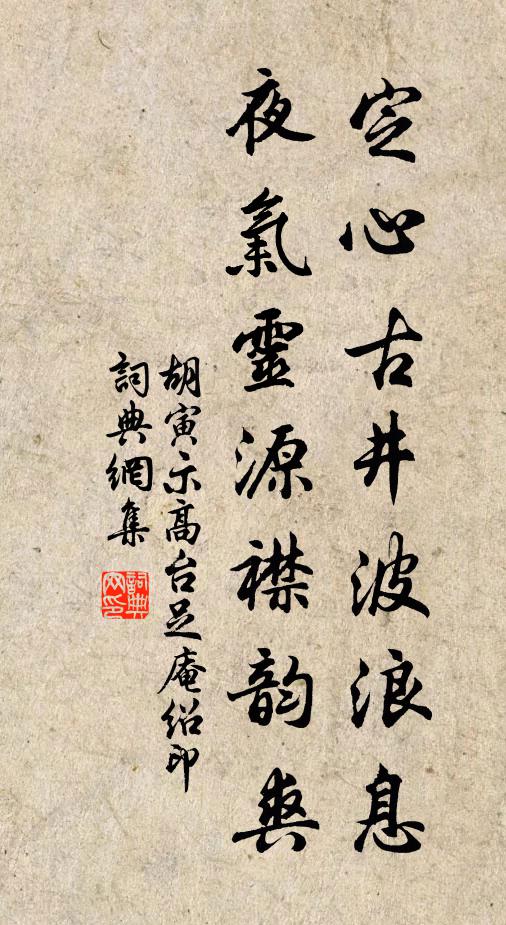 定心古井波浪息
夜氣靈源襟韵爽
胡寅示高台足庵紹印
詞典網集
詞典網印